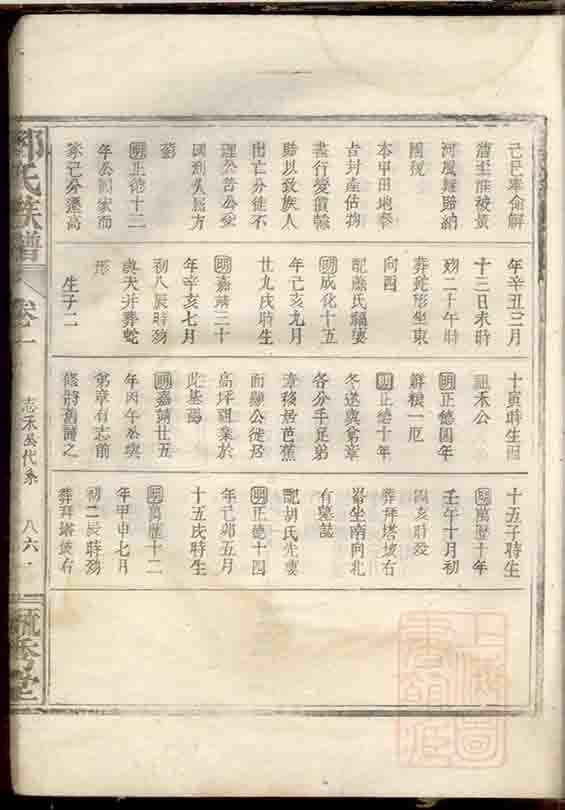 己巳奉命解
漕至淮被黃
河風
團稅
本甲田地拳
古封產估物
盡行變償輸
賒以致族人
出亡分徙不
理然苦公受
國荊矣居方
葛
明正德十二
年公因家而
眾己分遷高
年辛丑三月
十三日未時
歿二十午時
葬蛇形坐東
向酉
配蕭氏
明成化十五
年己亥九月
廿九戌時生
明嘉靖三十
年辛亥七月
初八辰時歿
與夫井葬蛇
形
生子二
十寅時生因
祖禾公
明正德四年
解粮一厄
明正德十年
冬送與弟章
各分手足弟
章移居芭蕉
而顯公徙居
高坪祖業於
此基焉
明嘉靖廿五
年丙午公與
弟章有志前
修將舊譜之
十五子時生
明萬歷十年
壬午十月初
四亥時歿
葬拜塔坡右
岩坐南向北
有墓誌
配胡氏先妻
明正德十四
年己卯五月
十五戌時生
明萬歷十二
年甲申七月
初二辰時歿
葬拜塔坡右
鄧氏族譜
卷一
志禾公代系
八六一
毓秀堂
上海圖書館藏